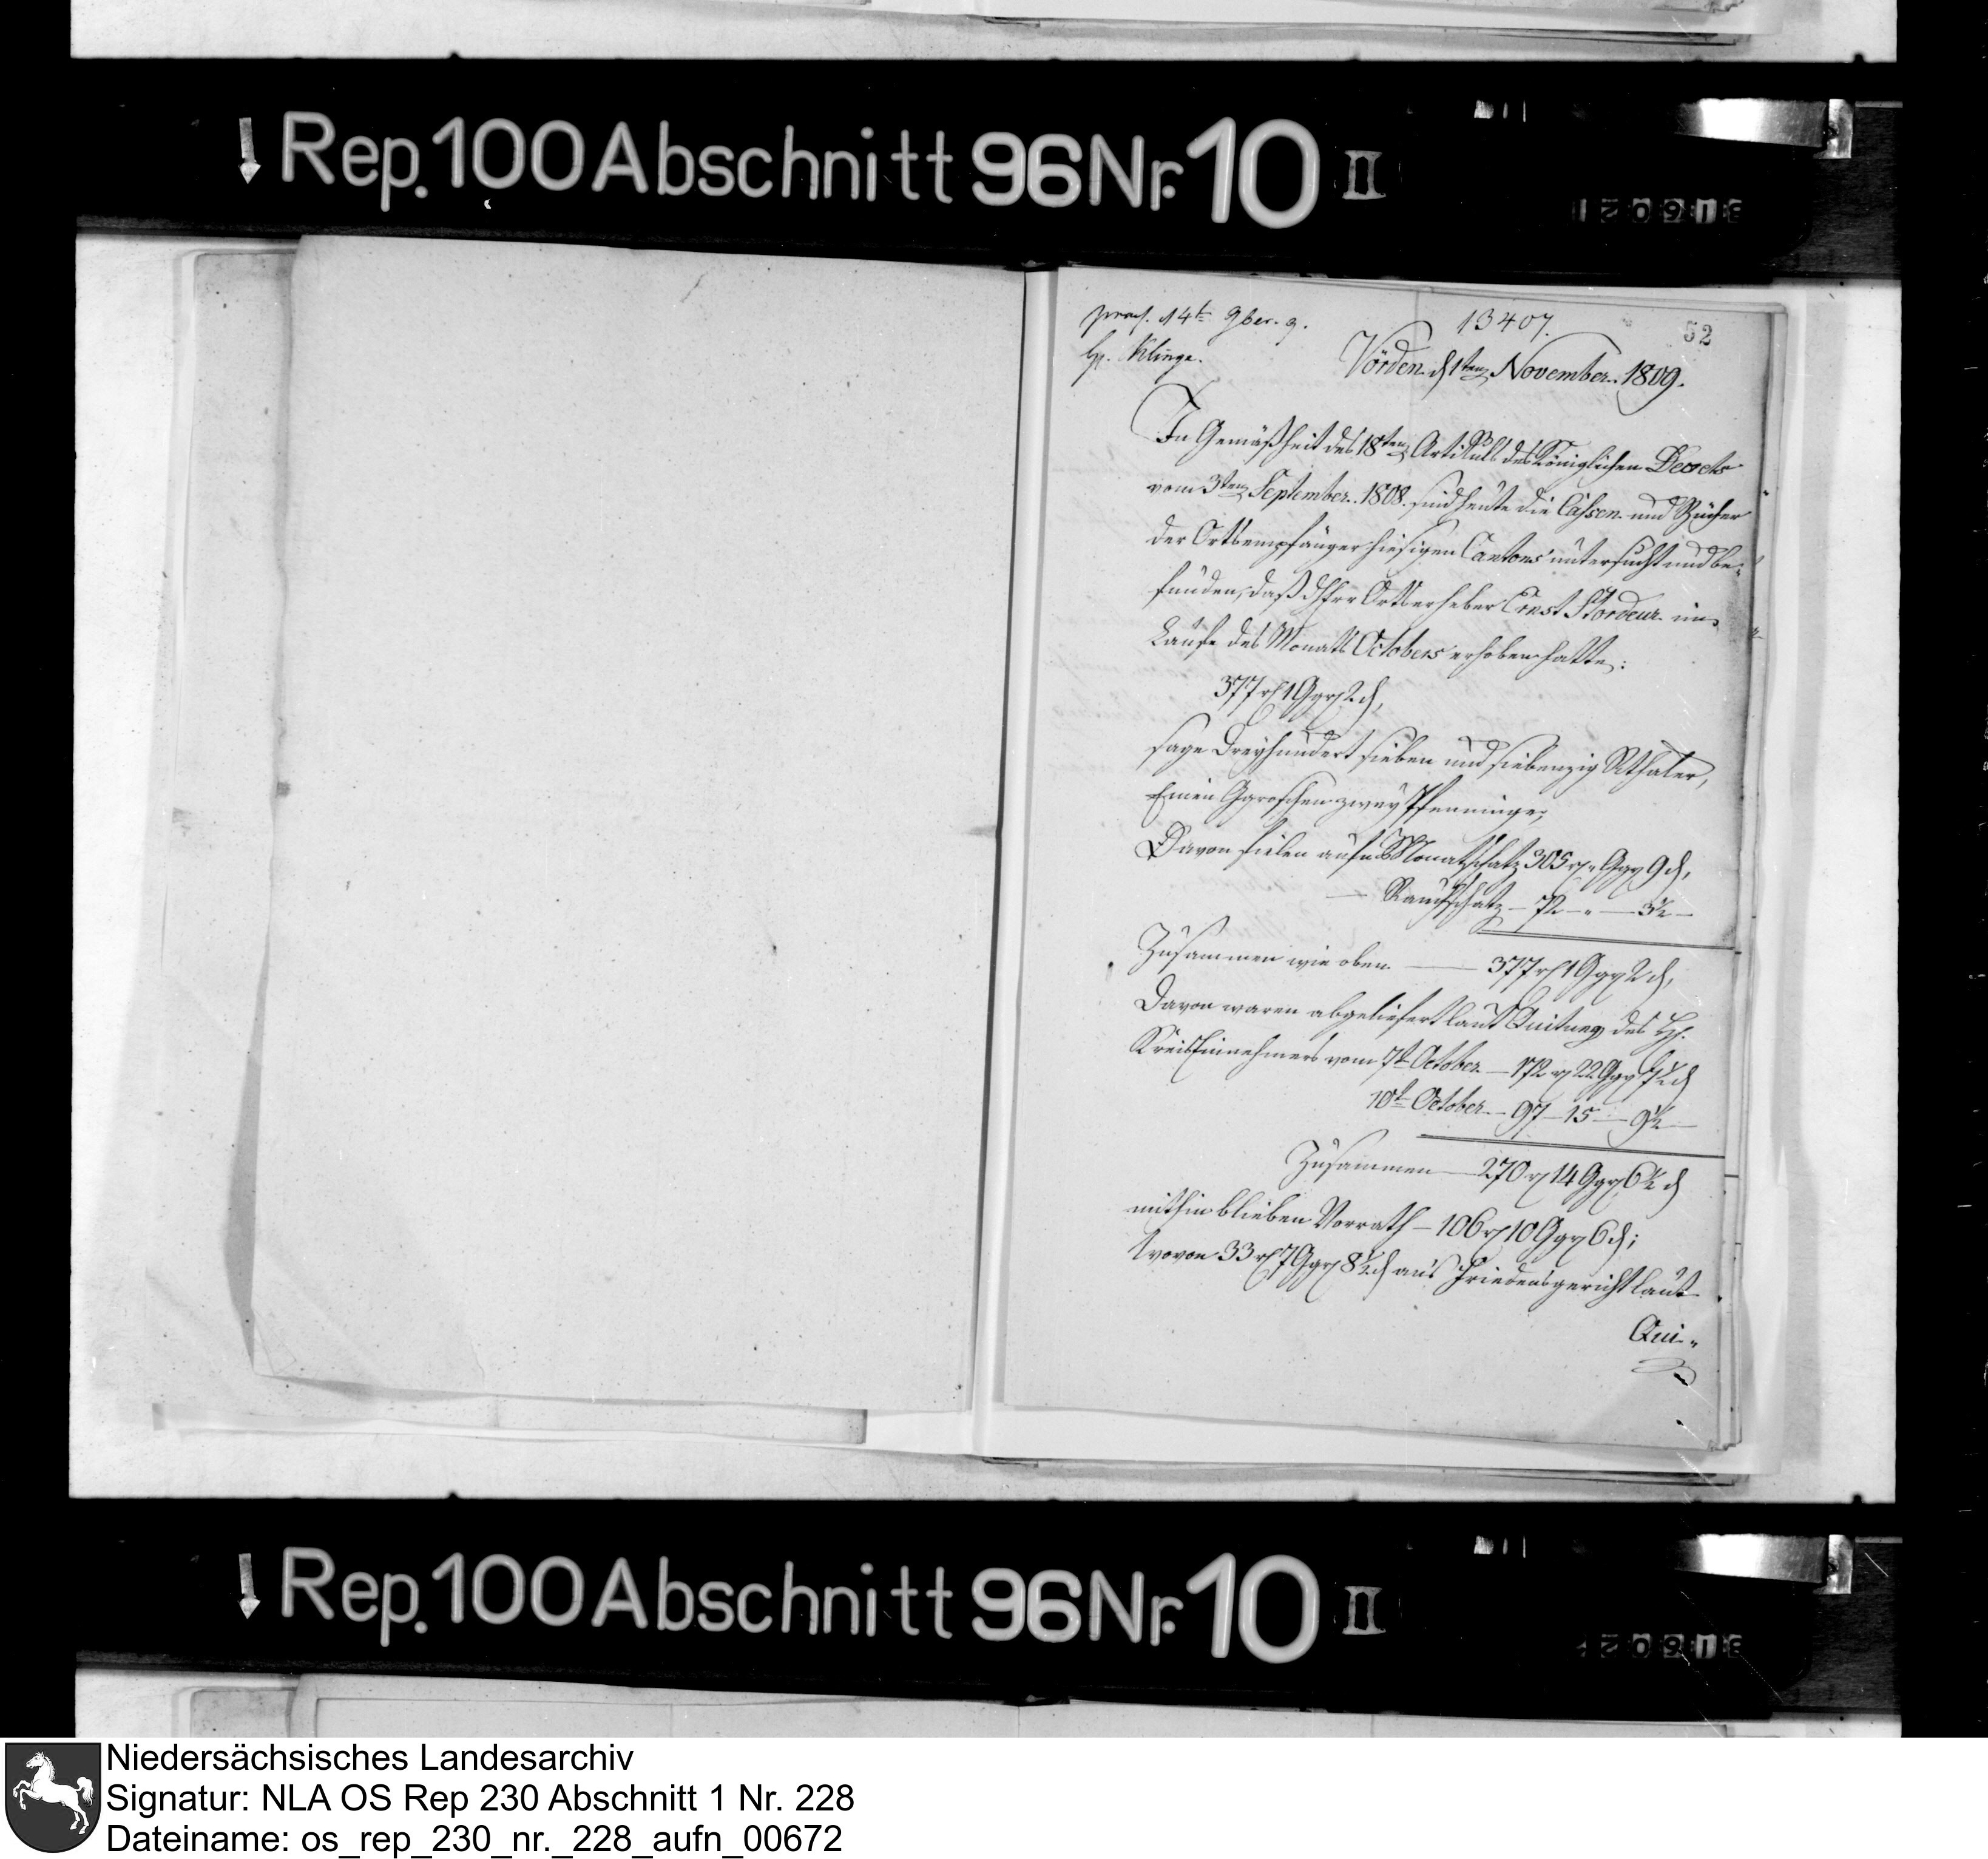 Rep. 100 Abschnitt 96 Nr. 10 II
praes. 14t 9ber. 9.
H. Klinge.
13407.
52
Vörden d 1ten November. 1809.
In Gemäßheit des 18ten Artikuls des Königlichen Decrets
vom 3ten September. 1808. sind heute die Cassen und Bücher
der Ortsempfänger hiesigen Cantons untersucht und be-
funden, daß Ortserheber Ernst Stordeur im
Laufe des Monats Octobers erhoben hatte:
377 rt 1 Ggr 2 d,
sage Dreyhundert sieben und siebenzig Rthaler,
Einen Ggroschen zwey Pfenninge;
Davon fielen aufn Monatschatz 305 rt " Ggr 9 d,
— Rauchschatz — 72 — " — 5 —
Zusammen wie oben — 377 rt 1 Ggr 2 d,
Davon waren abgeliefert laut Quitung des H.
KreisEinnehmers vom 7t October — 172 rt 22 Ggr d
10t October — 97 — 15 — 9½ —
Zusammen — 270 rt 14 Ggr 6½ d
mithin blieben Vorrath — 106 rt 10 Ggr 6 d;
wovon 33 rt 7 Ggr 8½ d ans Friedensgericht laut
Qui-
Rep. 100 Abschnitt 96 Nr. 10 II
Niedersächsisches Landesarchiv
Signatur: NLA OS Rep 230 Abschnitt 1 Nr. 228
Dateiname: os_rep_230_nr._228_aufn_00672